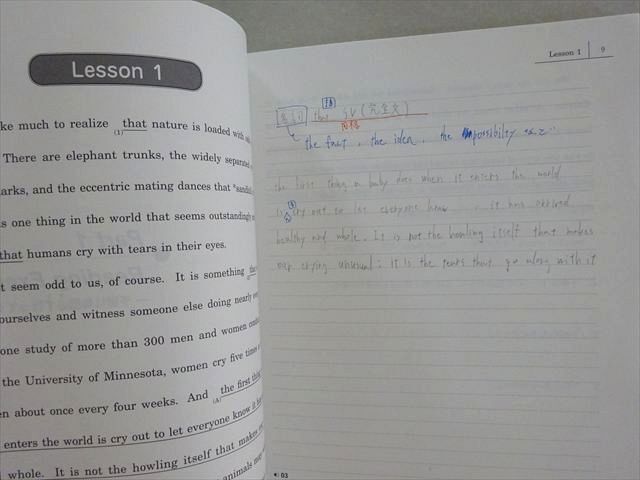 Lesson 1
ke much to realize that nature is loaded with
(1)
There are elephant trunks, the widely separated
arks, and the eccentric mating dances that
s one thing in the world that seems outstandingly
that humans cry with tears in their eyes.
t seem odd to us, of course. It is something
ourselves and witness someone else doing nearly
one study of more than 300 men and women
the University of Minnesota, women cry five times
en about once every four weeks. And the first
(A)
enters the world is cry out to let everyone know it
whole. It is not the howling itself that makes
animals
Lesson 1 9
名詞 that SV (完全文)
同格
the fact, the idea, the possibility
the first thing a baby does when it enters the world
is cry out to let everyone know it has arrived
healthy and whole. It is not the howling itself that makes
our crying unusual; it is the tears that go along with it
03